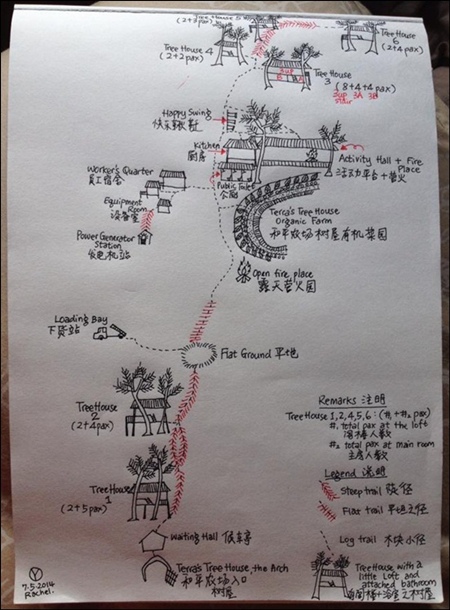 Tree House 5
(2+3pax)
Tree House
6
(2+4pax)
Tree House
4
(2+2pax)
Tree House
3
(8+4+4pax)
3A 3B
Happy Swing
Kitchen
厨房
Activity Hall + Fire
Place
Public Toilet
公厕
Worker's Quarter
员工宿舍
Equipment
Room
设备室
Power Generator
Station
发电机站
Terra's Tree House
Organic Farm
和平农场树屋有机菜园
Open fire place
露天营火园
Loading Bay
下货站
Flat Ground 平地
Tree House
2
(2+4pax)
Tree House
1
(2+5pax)
Waiting Hall 候车亭
Terra's Tree House, the Arch
和平农场入口
树屋
Remarks 注明
Tree House 1,2,4,5,6 : (#1 + #2 pax)
#1 total pax at the loft
阁楼人数
#2 total pax at main room
主房人数
Legend 说明
Steep trail 陡径
Flat trail 平坦之径
Log trail 木块小径
Tree House with a
little Loft and
attached bathroom
7.5.2014
Rachel.